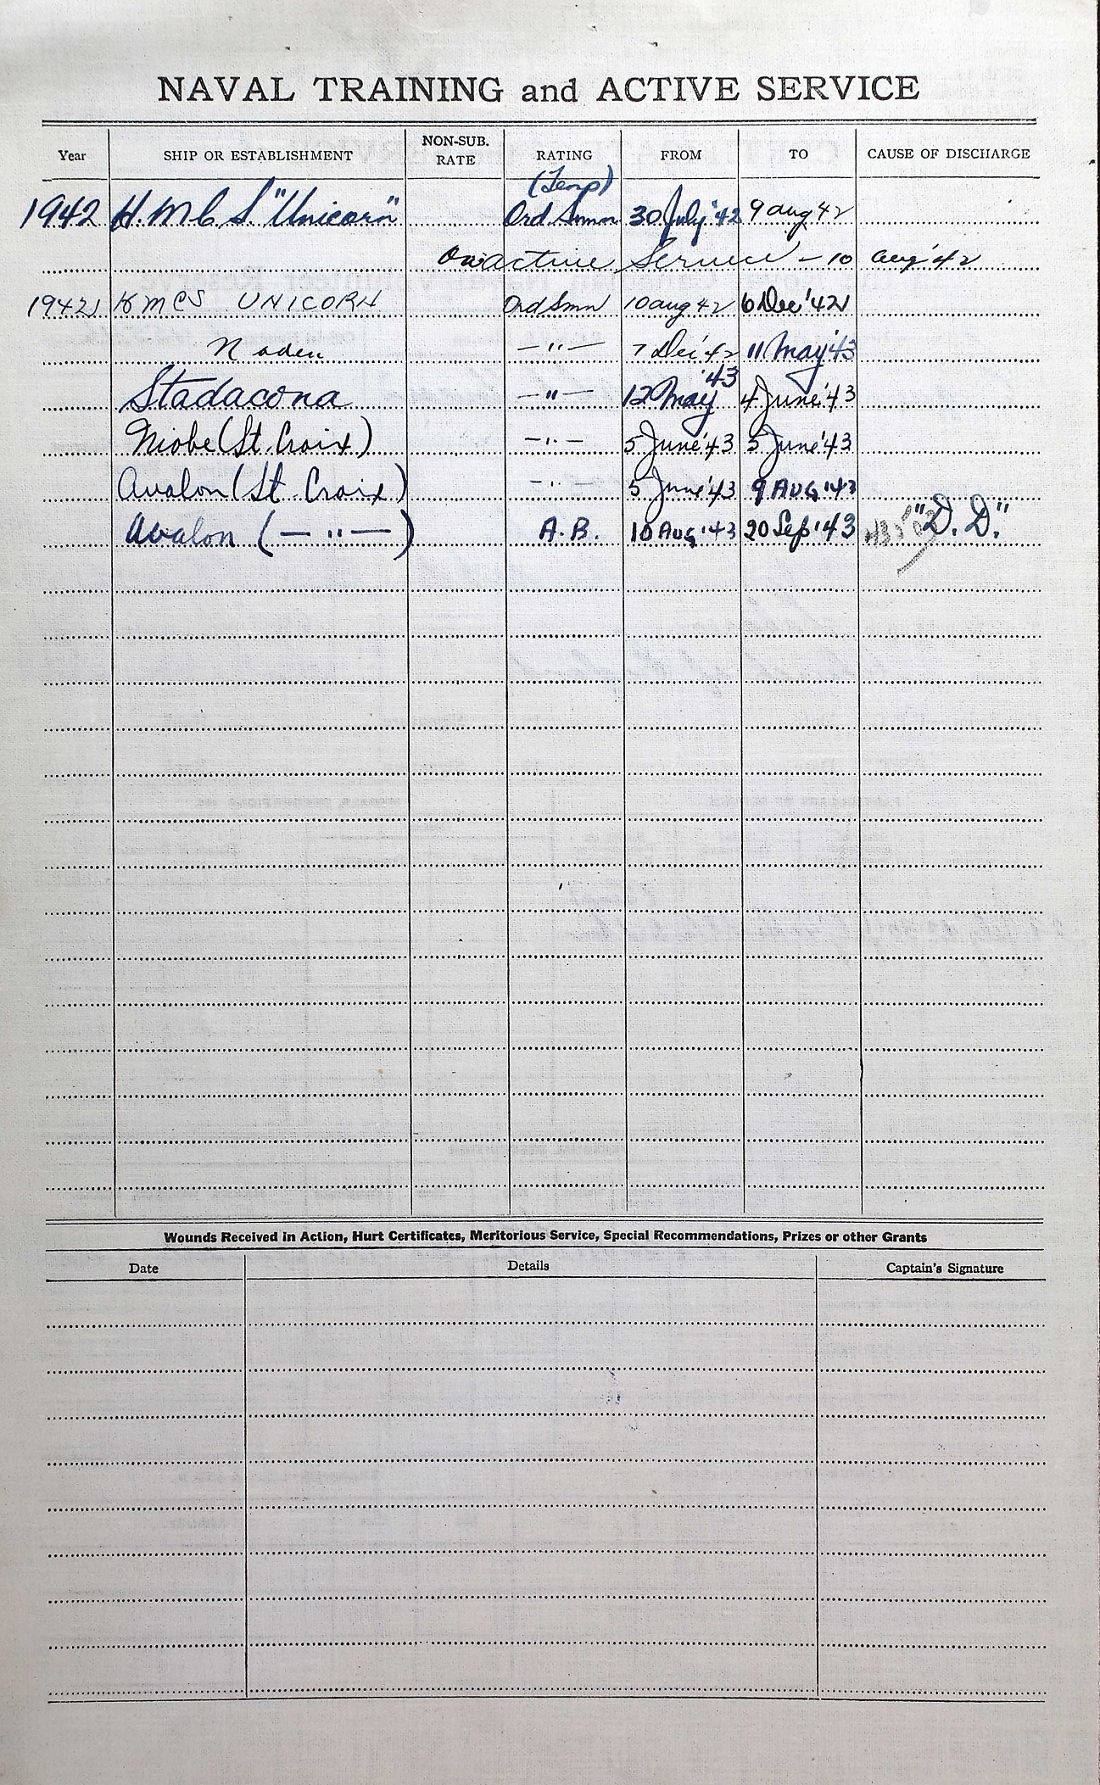 NAVAL TRAINING and ACTIVE SERVICE
Year SHIP OR ESTABLISHMENT NON-SUB. RATE RATING FROM TO CAUSE OF DISCHARGE
(Temp)
1942 H.M.C.S. "Unicorn" Ord Smn 30 July '42 9 Aug 42
On active Service – 10 Aug '42
1942 HMCS UNICORN Ord Smn 10 Aug 42 6 Dec '42
Naden —"— 7 Dec '42 11 May '43
Stadacona —"— 12 May '43 4 June '43
Niobe (St. Croix) —"— 5 June '43 5 June '43
Avalon (St. Croix) —"— 5 June '43 9 AUG '43
Avalon (—"—) A.B. 10 AUG '43 20 Sep '43 "D.D."
Wounds Received in Action, Hurt Certificates, Meritorious Service, Special Recommendations, Prizes or other Grants
Date Details Captain's Signature